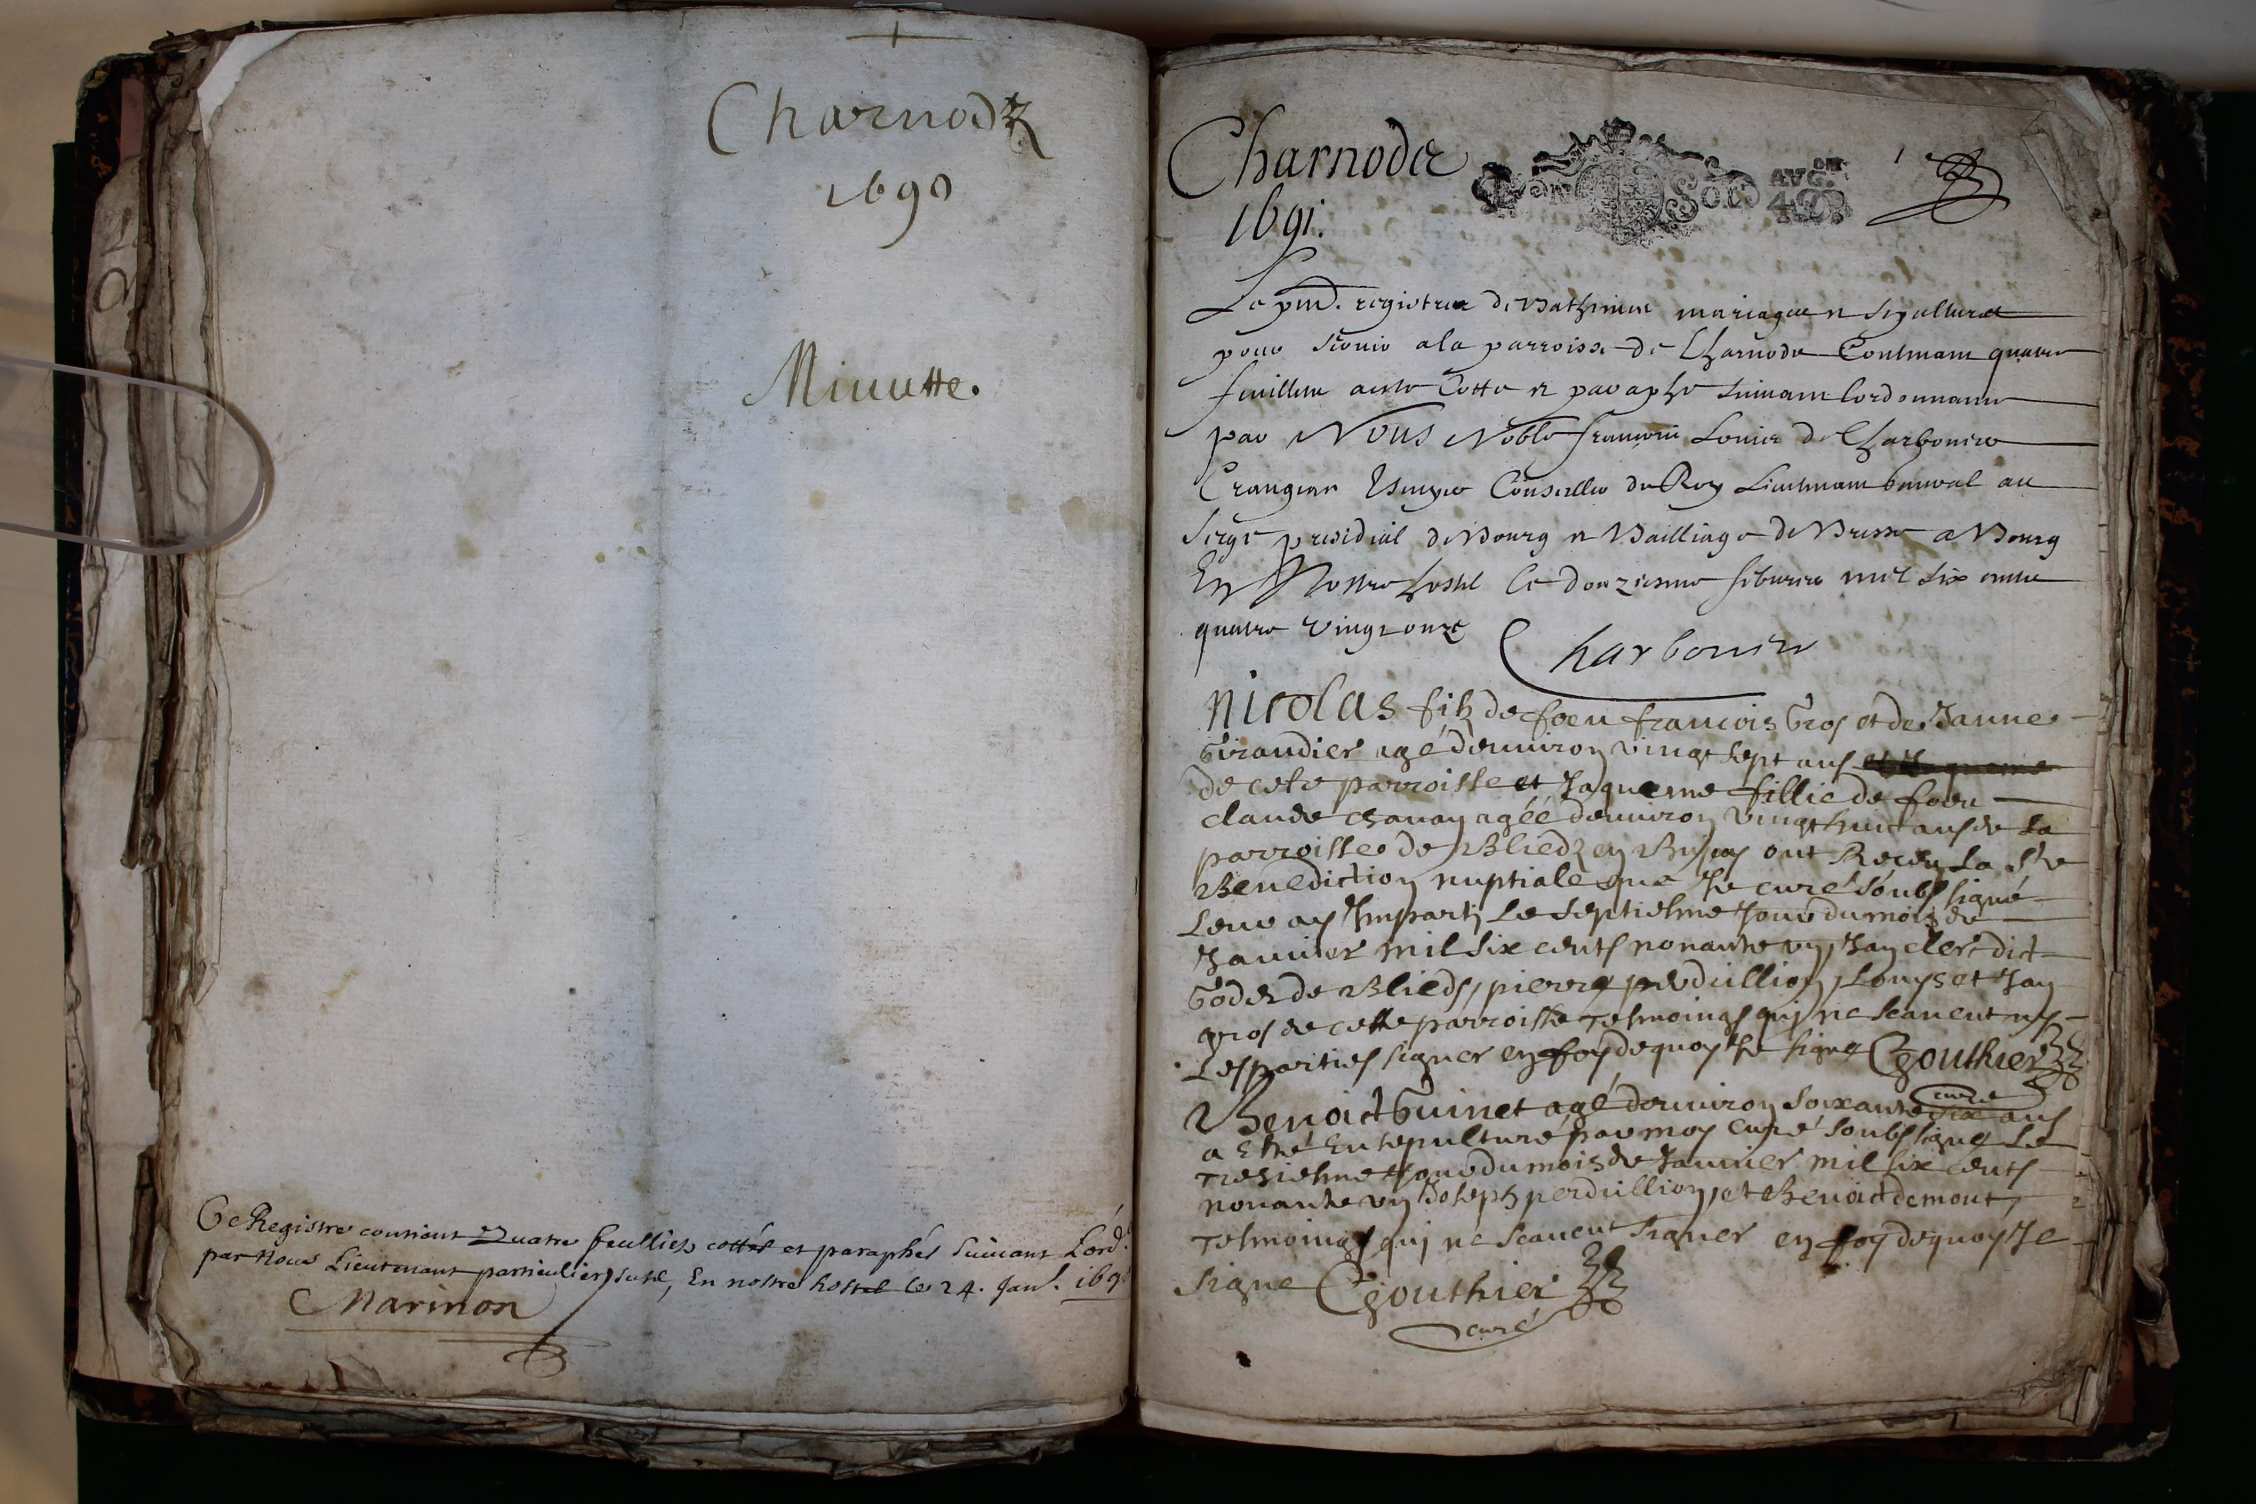 Charnodz
1690
Minutte.
Ce Registre contient Quatre feulliets cottés et paraphés suivant Lord.
par Nous Lieutenant particulier susd, En nostre hostel le 24. Janv. 169
Marinon
Charnodz
1691.
1
SOLS AVG.ON
Le pnt. registre de Baptesmes mariages et sepultures
pour servir a la parroisse de Charnodz Contenant quatre
feuillets a esté Cotté et paraphé suivant lordonnance
par Nous Noble François Louis de Charbonier
Crangeac Escuyer Conseiller du Roy Lieutenant General au
Siege presidial de Bourg et Bailliage de Bresse a Bourg
En Nostre hostel le douziesme febvrier mil six cents
quatre vingt onze
Charbonier
Nicolas filz de foeu francois Gros et de Janne
Girandier agé denviron vingt sept ans
de cete parroisse et Jaqueme fillie de foeu
claude chavan agéé denviron vingt huit ans de La
parroisse de Blied en Bugey ont Receu La Ste
Benediction nuptiale que Je curé soubssigné
Leur ay Imparti Le septiesme Jour du mois de
Janvier mil six cents nonante un, Jan clerc dict
Godez de Blieds, pierre perdrillion, Louys et Jan
gros de cette parroisse tesmoings qui ne scavent ny
Les parties signer en foy de quoy Je signe Gouthier
curé
Benoict Guinet agé denviron soixante six ans
a Esté Ensepulturé par moy curé soubssigné Le
tresiesme Jour du mois de Janvier mil six cents
nonante un Joseph perdrillion, et Benoict demont,
tesmoings qui ne scavent signer en foy de quoy Je
signe Gouthier
curé